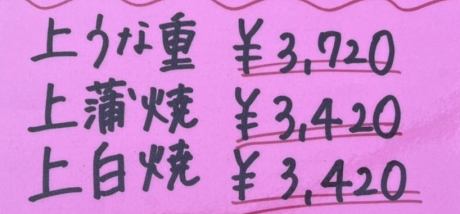 上うな重 ¥3,720
上蒲焼 ¥3,420
上白焼 ¥3,420